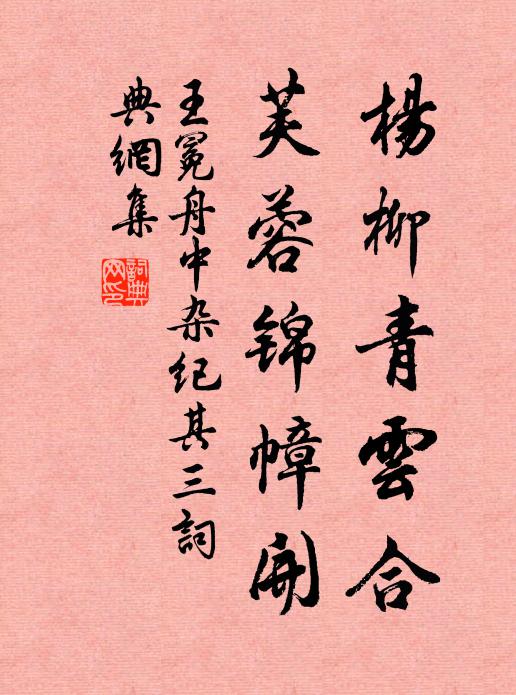 楊柳青雲合
芙蓉锦幛開
王冕舟中杂纪其三詞
典網集
詞典网印